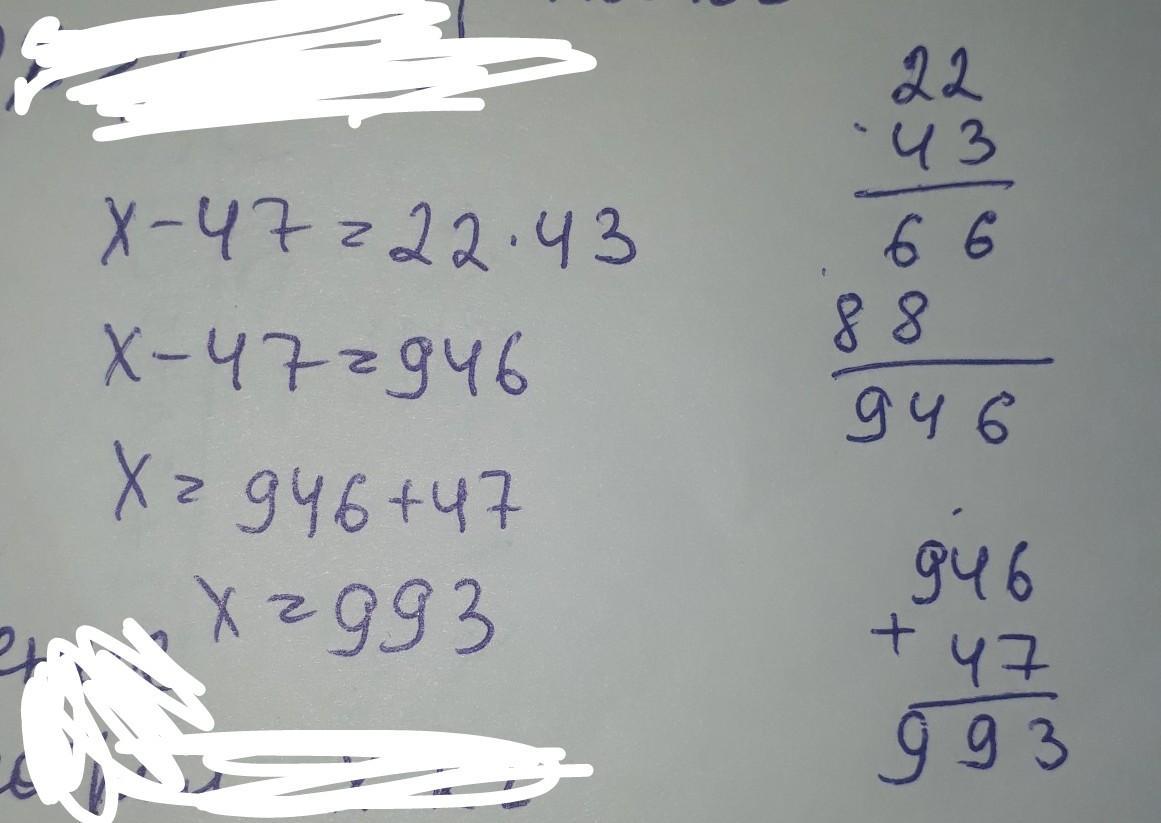 x-47=22·43
x-47=946
x=946+47
x=993
22
· 43
66
88
946
946
+ 47
993